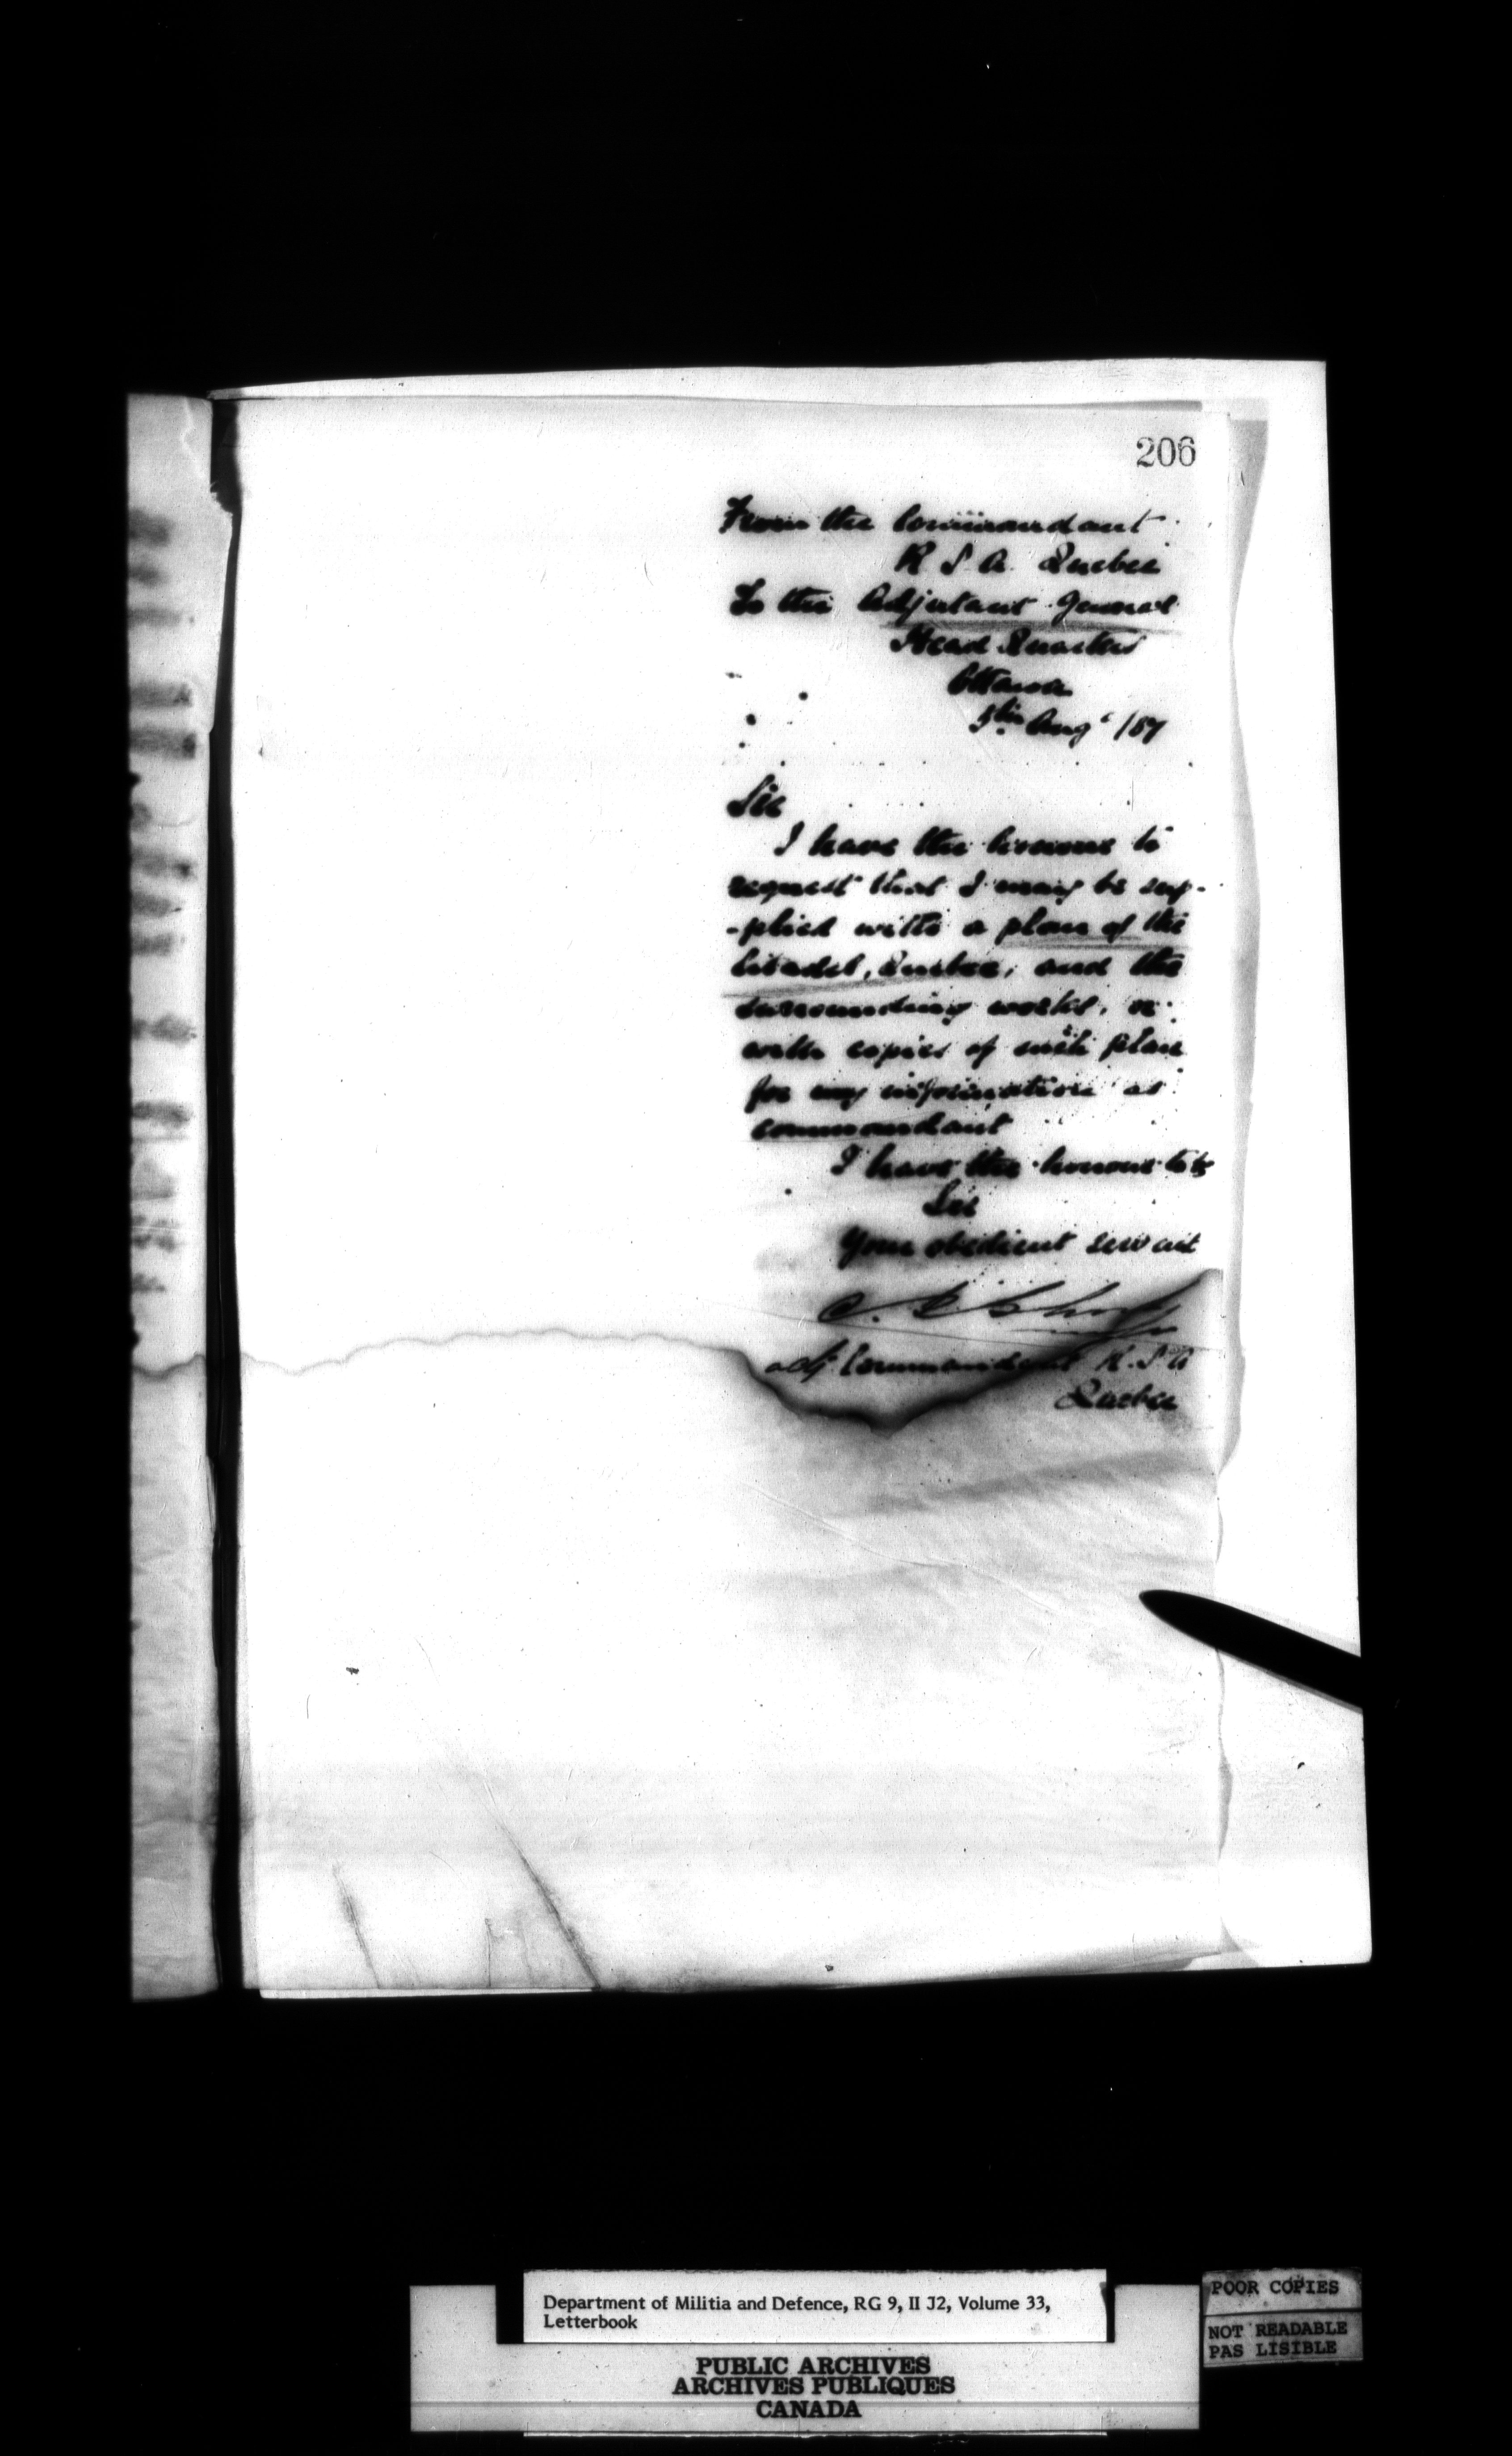 206
From the Commandant
R. S. A. Quebec
To the Adjutant General
Head Quarters
Ottawa
5th Aug /87
Sir
I have the honour to
request that I may be sup-
-plied with a plan of the
Citadel, Quebec, and the
surrounding works, or
with copies of such plan
for my information as
commandant
I have the honour to be
Sir
Your obedient servant
Commandant R. S. A
Quebec
Department of Militia and Defence, RG 9, II J2, Volume 33,
Letterbook
PUBLIC ARCHIVES
ARCHIVES PUBLIQUES
CANADA
POOR COPIES
NOT READABLE
PAS LISIBLE